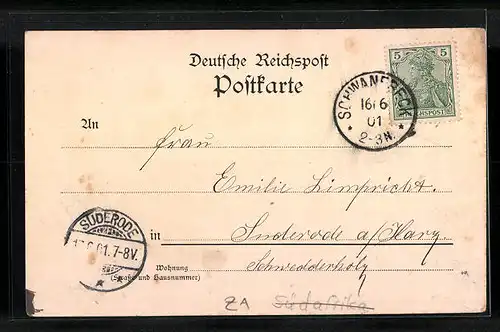 Deutsche Reichspost
Postkarte
5 5
REICHSPOST
SCHWANEBECK
16/6
01
2-3N.
An
Frau
Emilie Limpricht.
in Suderode a/Harz
Schwedderholz
Wohnung
(Straße und Hausnummer)
SUDERODE
17.6.01.7-8V.
ZA Südafrika